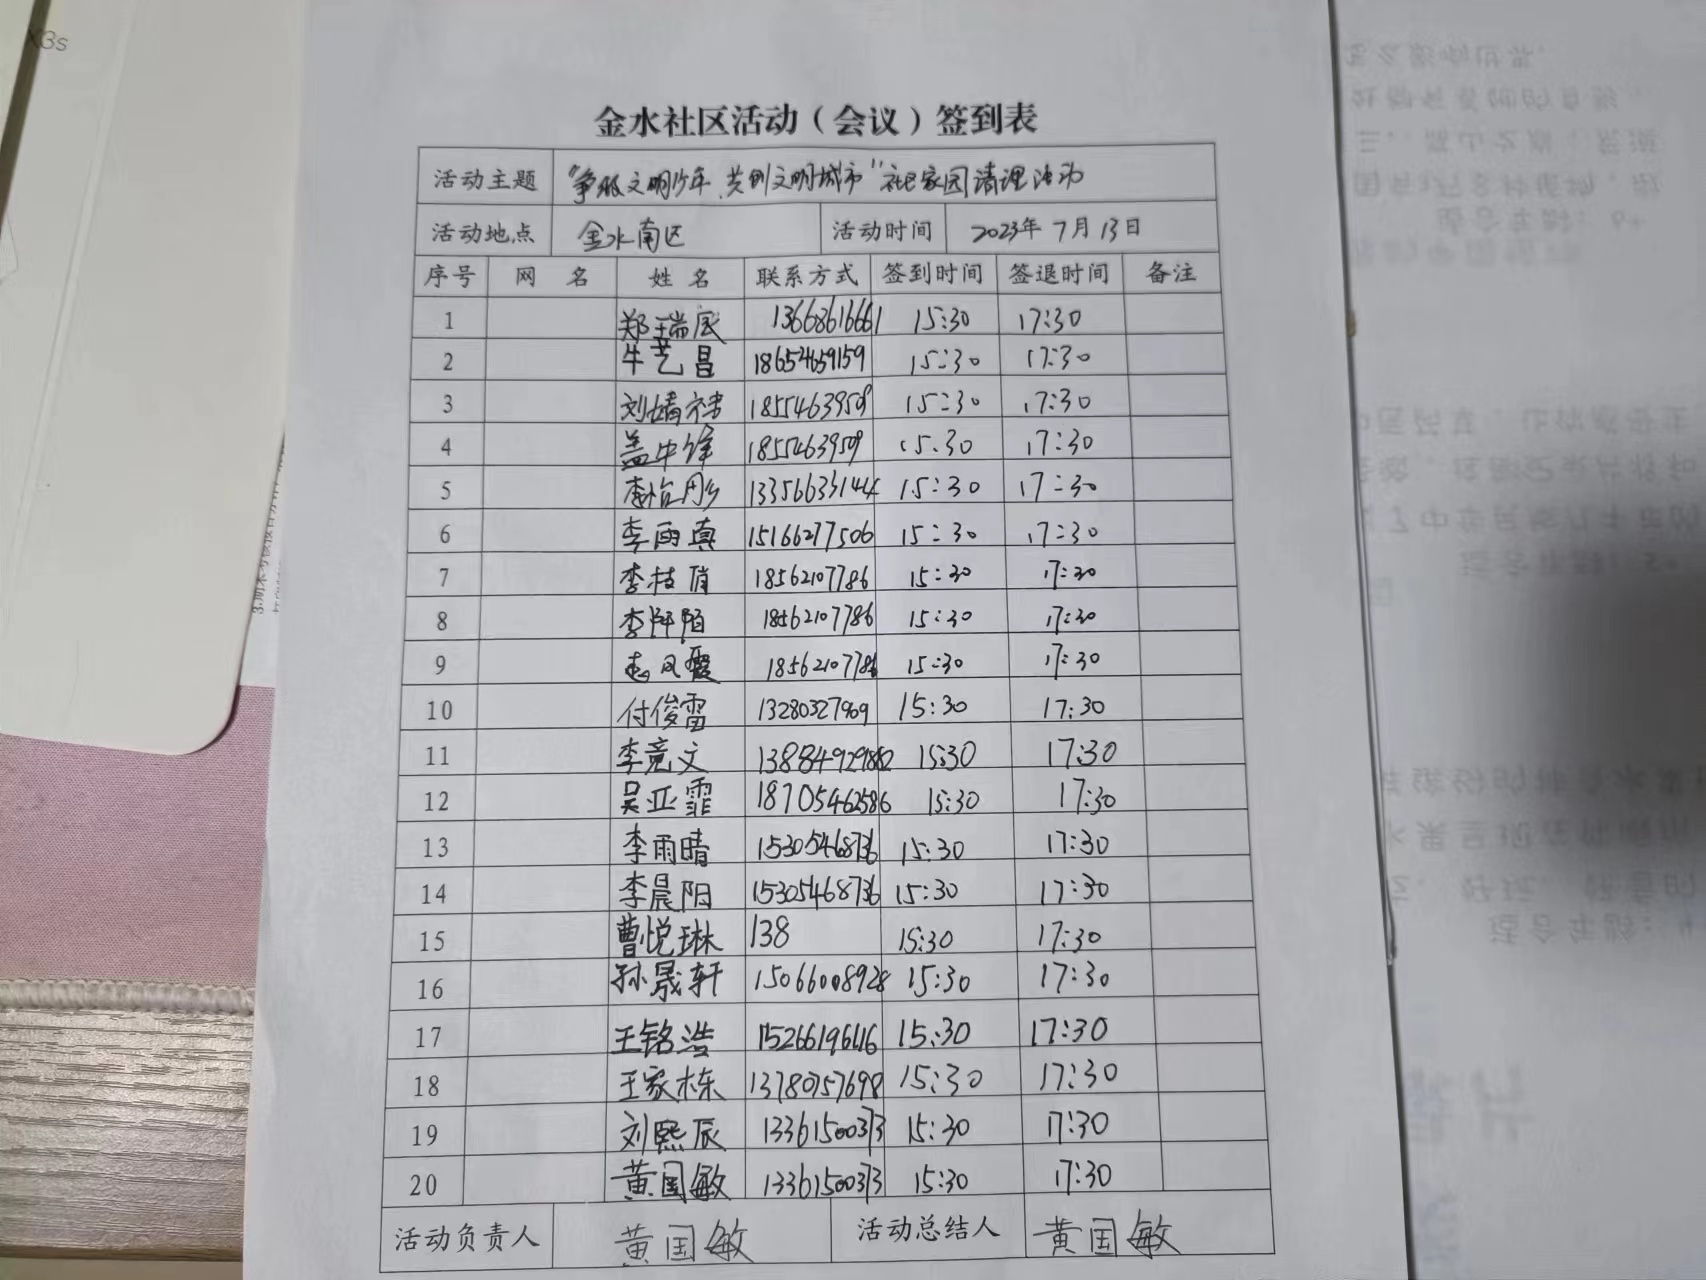 金水社区活动（会议）签到表
活动主题 "争做文明少年、共创文明城市"社区家园清理活动
活动地点 金水南区 活动时间 2023年7月13日
序号 网名 姓名 联系方式 签到时间 签退时间 备注
1 郑瑞辰 13668616661 15:30 17:30
2 牛艺昌 18654659159 15:30 17:30
3 刘婧祎 1855463959 15:30 17:30
4 盖中锋 1855463959 15:30 17:30
5 李怡彤 13356633144 15:30 17:30
6 李雨真 15166277506 15:30 17:30
7 李枝俏 18562107786 15:30 17:30
8 李 18562107786 15:30 17:30
9 凤霞 18562107786 15:30 17:30
10 付俊雷 13280327909 15:30 17:30
11 李竟文 15:30 17:30
12 吴亚霏 18705462586 15:30 17:30
13 李雨晴 15305468736 15:30 17:30
14 李晨阳 15305468736 15:30 17:30
15 曹悦琳 138 15:30 17:30
16 孙晟轩 15066008928 15:30 17:30
17 王铭浩 15266196616 15:30 17:30
18 王家栋 13780757698 15:30 17:30
19 刘熙辰 13361500373 15:30 17:30
20 黄国敏 13361500373 15:30 17:30
活动负责人 黄国敏 活动总结人 黄国敏